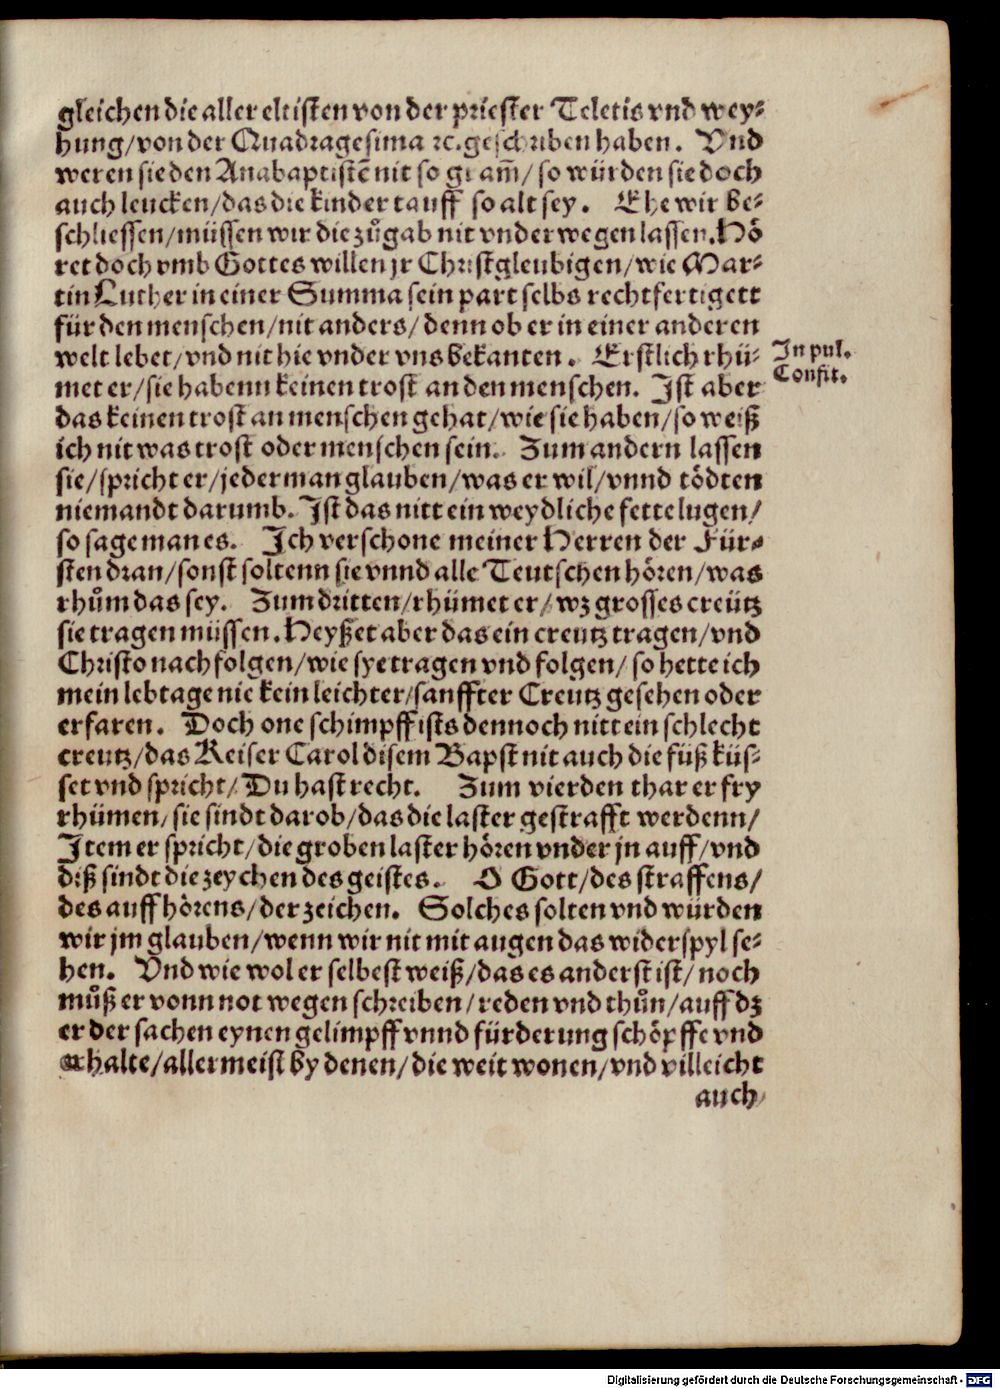 gleichen die aller eltisten von der priester Teletis vnd wey-
hung/von der Quadragesima ꝛc.geschriben haben. Vnd
weren sie den Anabaptistē nit so gram̄/ so würden sie doch
auch leucken/das die kinder tauff so alt sey. Ehe wir be-
schliessen/müssen wir die zůgab nit vnderwegen lassen.Hö
ret doch vmb Gottes willen jr Christgleubigen/wie Mar-
tin Luther in einer Summa sein part selbs rechtfertigett
für den menschen/nit anders/denn ob er in einer anderen
welt lebet/vnd nit hie vnder vns bekanten. Erstlich rhü-
In pul.
Confit.
met er/sie habenn keinen trost an den menschen. Ist aber
das keinen trost an menschen gehat/wie sie haben/so weiß
ich nit was trost oder menschen sein. Zum andern lassen
sie/spricht er/jederman glauben/was er wil/vnnd tödten
niemandt darumb. Ist das nitt ein weydliche fette lugen/
so sage man es. Ich verschone meiner Herren der Für-
sten dran/sonst soltenn sie vnnd alle Teutschen hören/was
rhům das sey. Zum dritten/rhümet er/wz grosses creütz
sie tragen müssen.Heyßet aber das ein creutz tragen/vnd
Christo nachfolgen/wie sye tragen vnd folgen/so hette ich
mein lebtage nie kein leichter/sanffter Creutz gesehen oder
erfaren. Doch one schimpff ists dennoch nitt ein schlecht
creutz/das Keiser Carol disem Bapst nit auch die füß küs-
set vnd spricht/Du hast recht. Zum vierden thar er fry
rhümen/sie sindt darob/das die laster gestrafft werdenn/
Item er spricht/die groben laster hören vnder jn auff/vnd
diß sindt die zeychen des geistes. O Gott/des straffens/
des auffhörens/der zeichen. Solches solten vnd würden
wir jm glauben/wenn wir nit mit augen das widerspyl se-
hen. Vnd wie wol er selbest weiß/das es anderst ist/noch
můß er vonn not wegen schreiben/reden vnd thůn/auff dz
er der sachen eynen gelimpff vnnd fürderung schöpffe vnd
erhalte/allermeist by denen/die weit wonen/vnd villeicht
auch
Digitalisierung gefördert durch die Deutsche Forschungsgemeinschaft - DFG